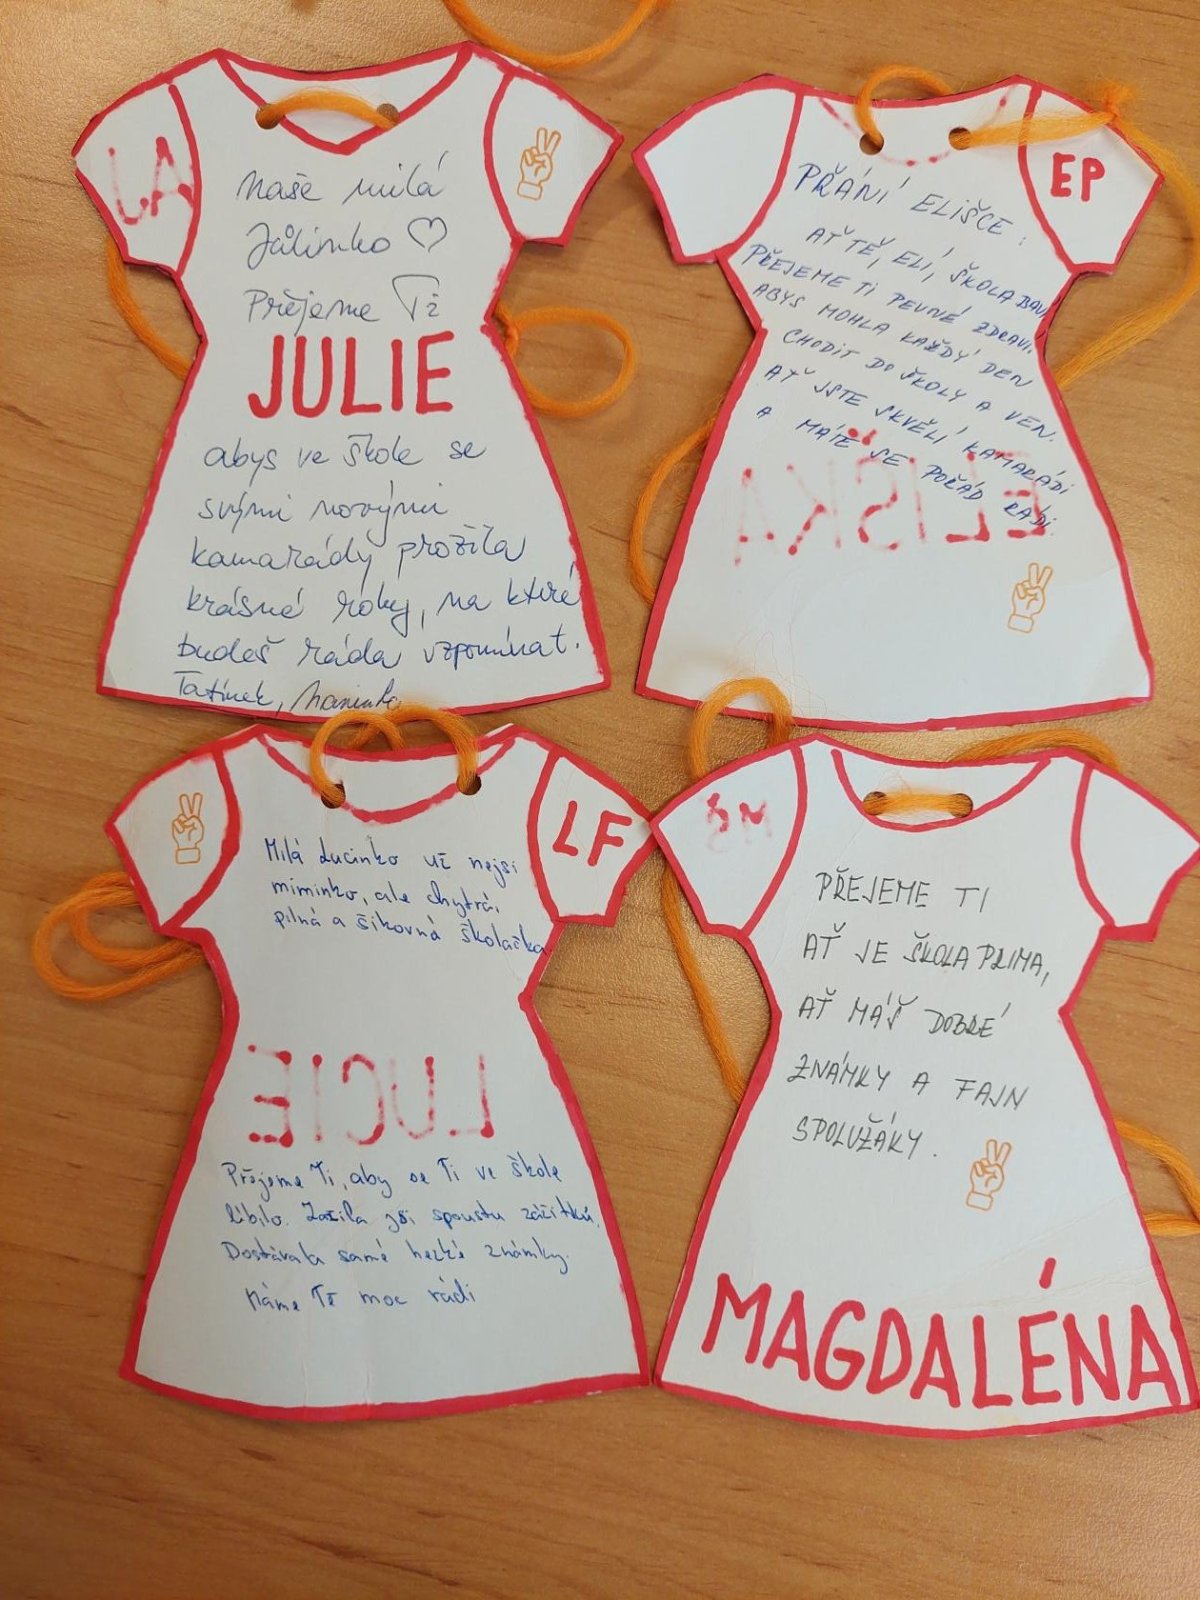 LA
Naše milá
Júlinko ♡
Přejeme Ti
JULIE
abys ve škole se
svými novými
kamarády prožila
krásné roky, na které
budeš ráda vzpomínat.
Tatínek, maminka
EP
PŘÁNÍ ELIŠCE:
AŤ TĚ, ELI, ŠKOLA BAVÍ
PŘEJEME TI PEVNÉ ZDRAVÍ.
ABYS MOHLA KAŽDÝ DEN
CHODIT DO ŠKOLY A VEN.
AŤ JSTE SKVĚLÍ KAMARÁDI
A MÁTE SE POŘÁD RÁDI.
ELIŠKA
LF
Milá Lucinko už nejsi
miminko, ale chytrá,
pilná a šikovná školačka
LUCIE
Přejeme Ti, aby se Ti ve škole
líbilo. Zažila jsi spoustu zážitků.
Dostávala samé hezké známky.
Máme Tě moc rádi
PŘEJEME TI
AŤ JE ŠKOLA PRIMA,
AŤ MÁŠ DOBRÉ
ZNÁMKY A FAJN
SPOLUŽÁKY.
MAGDALÉNA